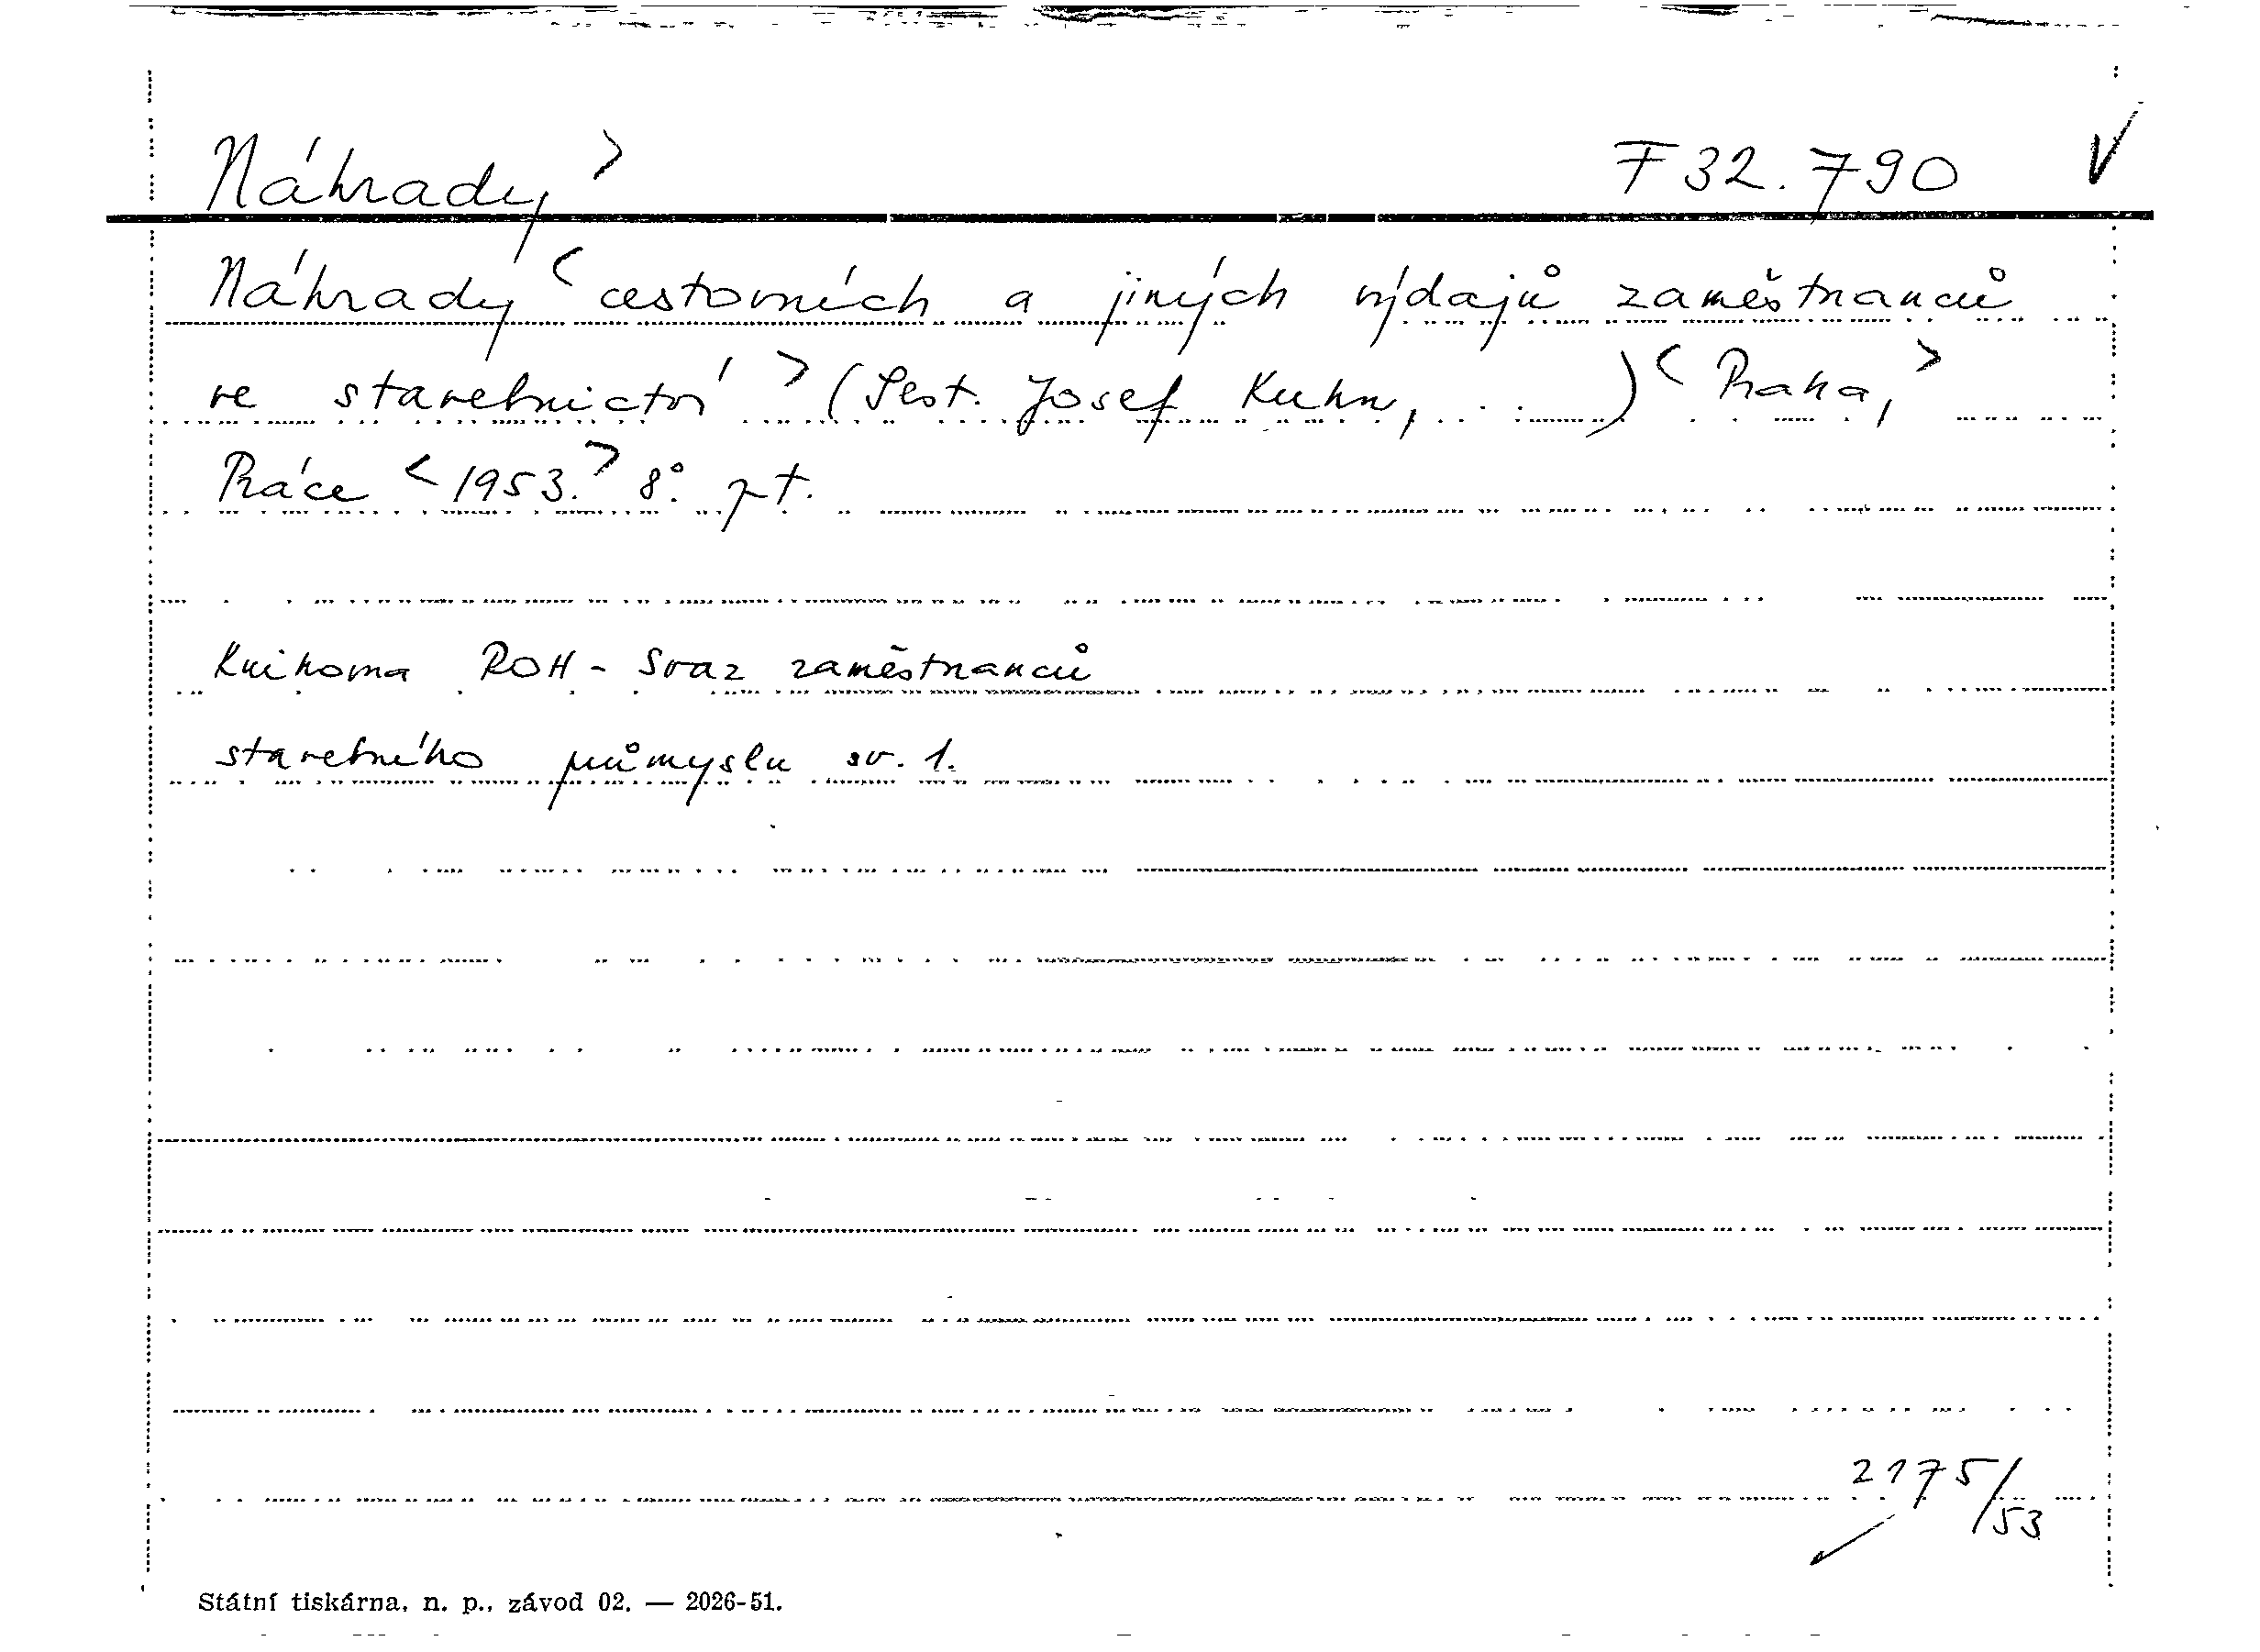 Náhrady > F 32.790 V
Náhrady < cestovních a jiných výdajů zaměstnanců
ve stavebnictví > (Sest. Josef Kuhn, ....) < Praha, >
Práce < 1953. > 8°. pt.
Knihovna ROH - Svaz zaměstnanců
stavebního průmyslu sv. 1.
2175/53
Státní tiskárna, n. p., závod 02. — 2026-51.